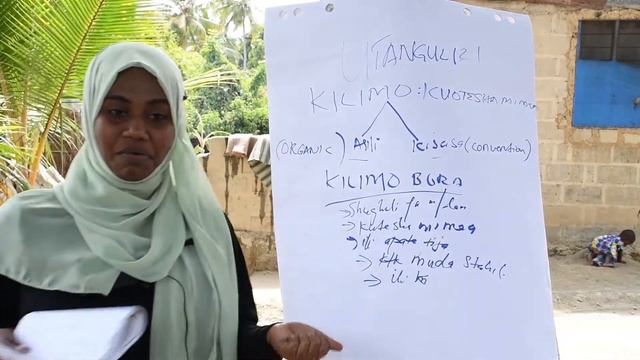 UTANGULIZI
KILIMO : KUOTESHA mimea
(ORGANIC) Asili kisasa (convention)
KILIMO BORA
→ Shughuli ya
→ Kuotesha mimea
→ ili apate tija
→ muda
→ ili